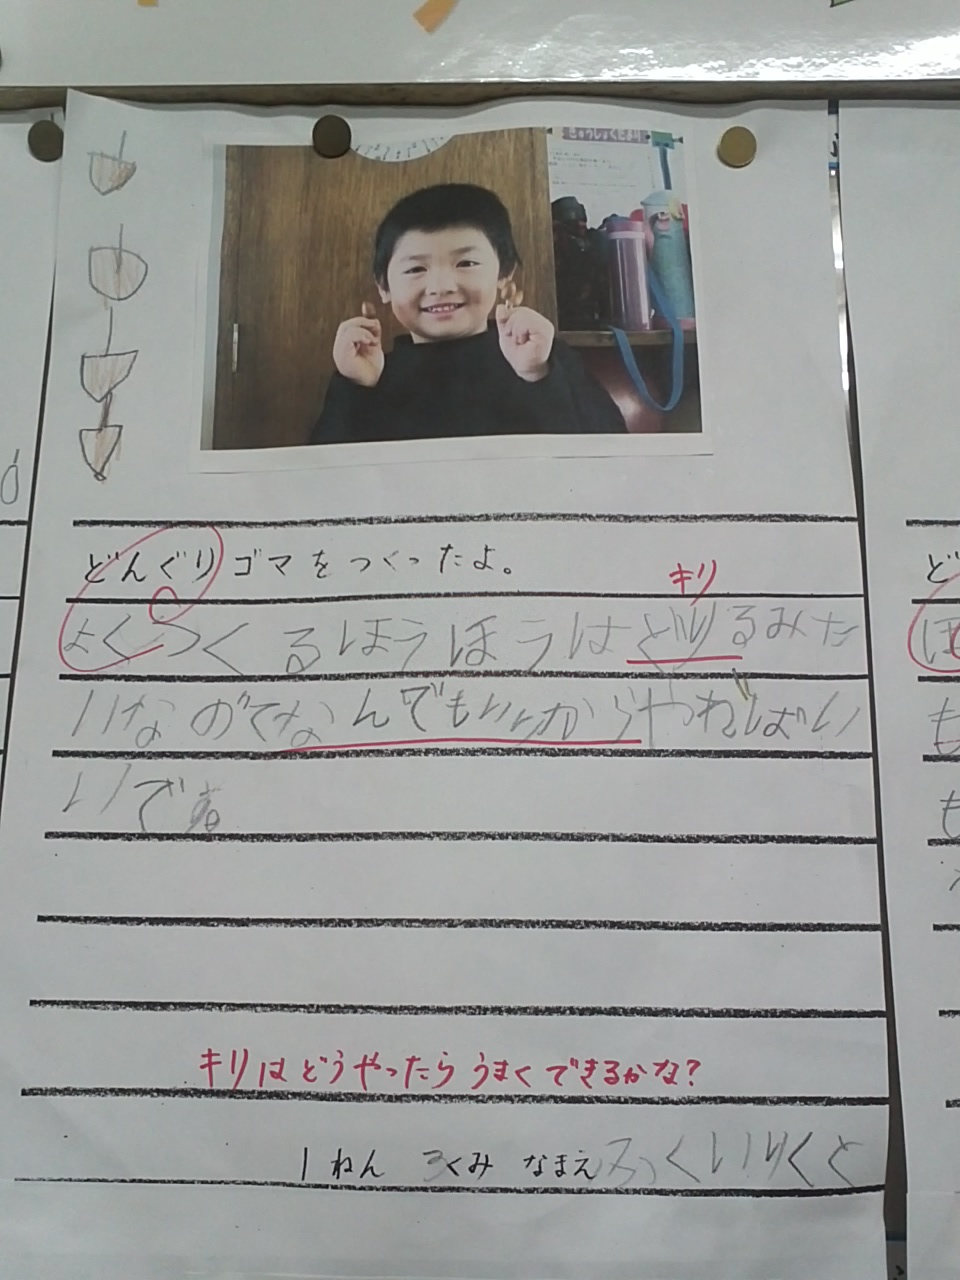 きゅうしょくだより
どんぐりゴマをつくったよ。
キリ
よくつくるほうほうはどりるみた
いなのでなんでもいいからやねばい
いです
キリはどうやったらうまくできるかな?
1ねん ろくみ なまえ ふくいりくと
ど
ほ
も
も